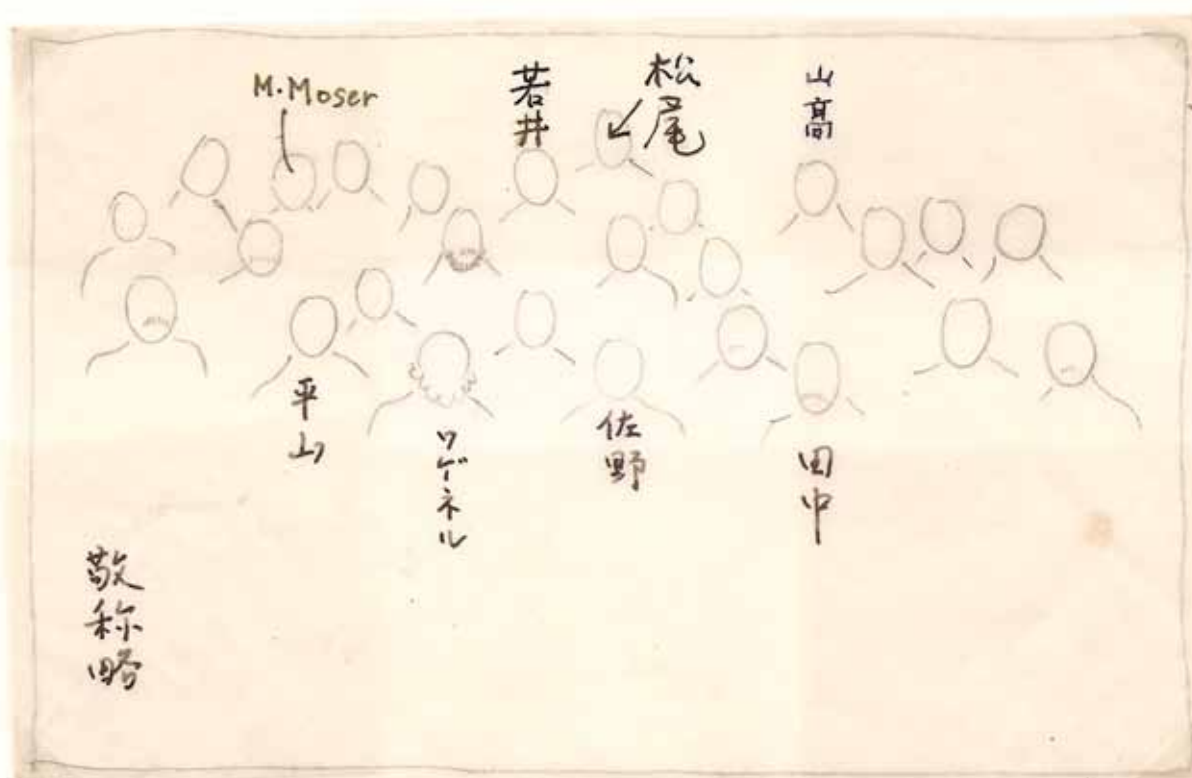 M.Moser
若井
松尾
山髙
平山
ワゲネル
佐野
田中
敬称略